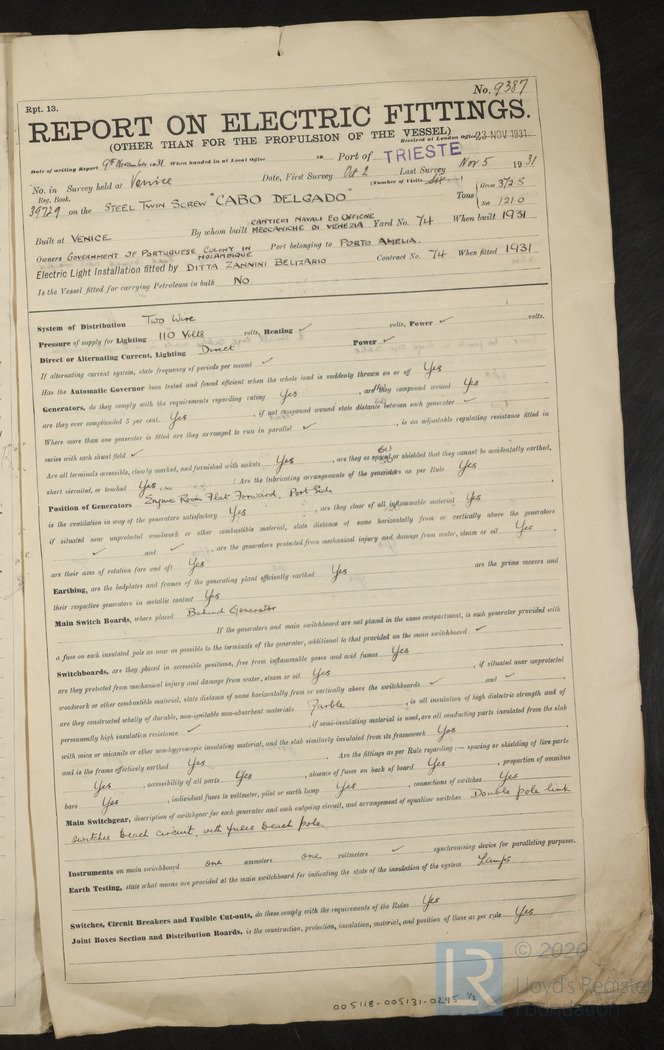 No. 9387
Rpt. 13.
REPORT ON ELECTRIC FITTINGS.
(OTHER THAN FOR THE PROPULSION OF THE VESSEL)
Received at London Office 23 NOV 1931
Date of writing Report 9th November 1931 When handed in at Local Office 19 Port of TRIESTE
No. in Survey held at Venice Date, First Survey Oct 2 Last Survey Nov 5 1931
Reg. Book. (Number of Visits Six)
39729 on the STEEL TWIN SCREW "CABO DELGADO" Tons { Gross 372.5
Net 121.0
Built at VENICE By whom built CANTIERI NAVALI ED OFFICINE MECCANICHE DI VENEZIA Yard No. 74 When built 1931
Owners GOVERNMENT OF PORTUGUESE COLONY IN MOZAMBIQUE Port belonging to PORTO AMELIA.
Electric Light Installation fitted by DITTA ZANNINI BELIZARIO Contract No. 74 When fitted 1931
Is the Vessel fitted for carrying Petroleum in bulk NO
System of Distribution Two Wire
Pressure of supply for Lighting 110 Volts volts, Heating ✓ volts, Power ✓ volts.
Direct or Alternating Current, Lighting Direct Power ✓
If alternating current system, state frequency of periods per second ✓
Has the Automatic Governor been tested and found efficient when the whole load is suddenly thrown on or off Yes
Generators, do they comply with the requirements regarding rating Yes , are they compound wound Yes
are they over compounded 5 per cent. Yes , if not compound wound state distance between each generator ✓
Where more than one generator is fitted are they arranged to run in parallel ✓ , is an adjustable regulating resistance fitted in
series with each shunt field ✓
Are all terminals accessible, clearly marked, and furnished with sockets Yes , are they so spaced or shielded that they cannot be accidentally earthed,
short circuited, or touched Yes Are the lubricating arrangements of the generators as per Rule Yes
Position of Generators Engine Room Flat Forward, Port Side
is the ventilation in way of the generators satisfactory Yes , are they clear of all inflammable material Yes
if situated near unprotected woodwork or other combustible material, state distance of same horizontally from or vertically above the generators
✓ and ✓ , are the generators protected from mechanical injury and damage from water, steam or oil Yes
are their axes of rotation fore and aft Yes
Earthing, are the bedplates and frames of the generating plant efficiently earthed Yes are the prime movers and
their respective generators in metallic contact Yes
Main Switch Boards, where placed Behind Generator
If the generators and main switchboard are not placed in the same compartment, is each generator provided with
a fuse on each insulated pole as near as possible to the terminals of the generator, additional to that provided on the main switchboard ✓
Switchboards, are they placed in accessible positions, free from inflammable gases and acid fumes Yes
are they protected from mechanical injury and damage from water, steam or oil Yes , if situated near unprotected
woodwork or other combustible material, state distance of same horizontally from or vertically above the switchboards ✓ and ✓
are they constructed wholly of durable, non-ignitable non-absorbent materials Marble , is all insulation of high dielectric strength and of
permanently high insulation resistance ✓ , if semi-insulating material is used, are all conducting parts insulated from the slab
with mica or micanite or other non-hygroscopic insulating material, and the slab similarly insulated from its framework Yes
and is the frame effectively earthed Yes . Are the fittings as per Rule regarding :— spacing or shielding of live parts
Yes , accessibility of all parts Yes , absence of fuses on back of board Yes , proportion of omnibus
bars Yes , individual fuses to voltmeter, pilot or earth lamp Yes , connections of switches Yes
Main Switchgear, description of switchgear for each generator and each outgoing circuit, and arrangement of equalizer switches Double pole link
switches to each circuit, with fuses to each pole.
Instruments on main switchboard one ammeters one voltmeters ✓ synchronising device for paralleling purposes.
Earth Testing, state what means are provided at the main switchboard for indicating the state of the insulation of the system Lamps
Switches, Circuit Breakers and Fusible Cut-outs, do these comply with the requirements of the Rules Yes
Joint Boxes Section and Distribution Boards, is the construction, protection, insulation, material, and position of these as per rule Yes
005118-005131-0295 1/2
LR
© 2020
Lloyd's Register
Foundation